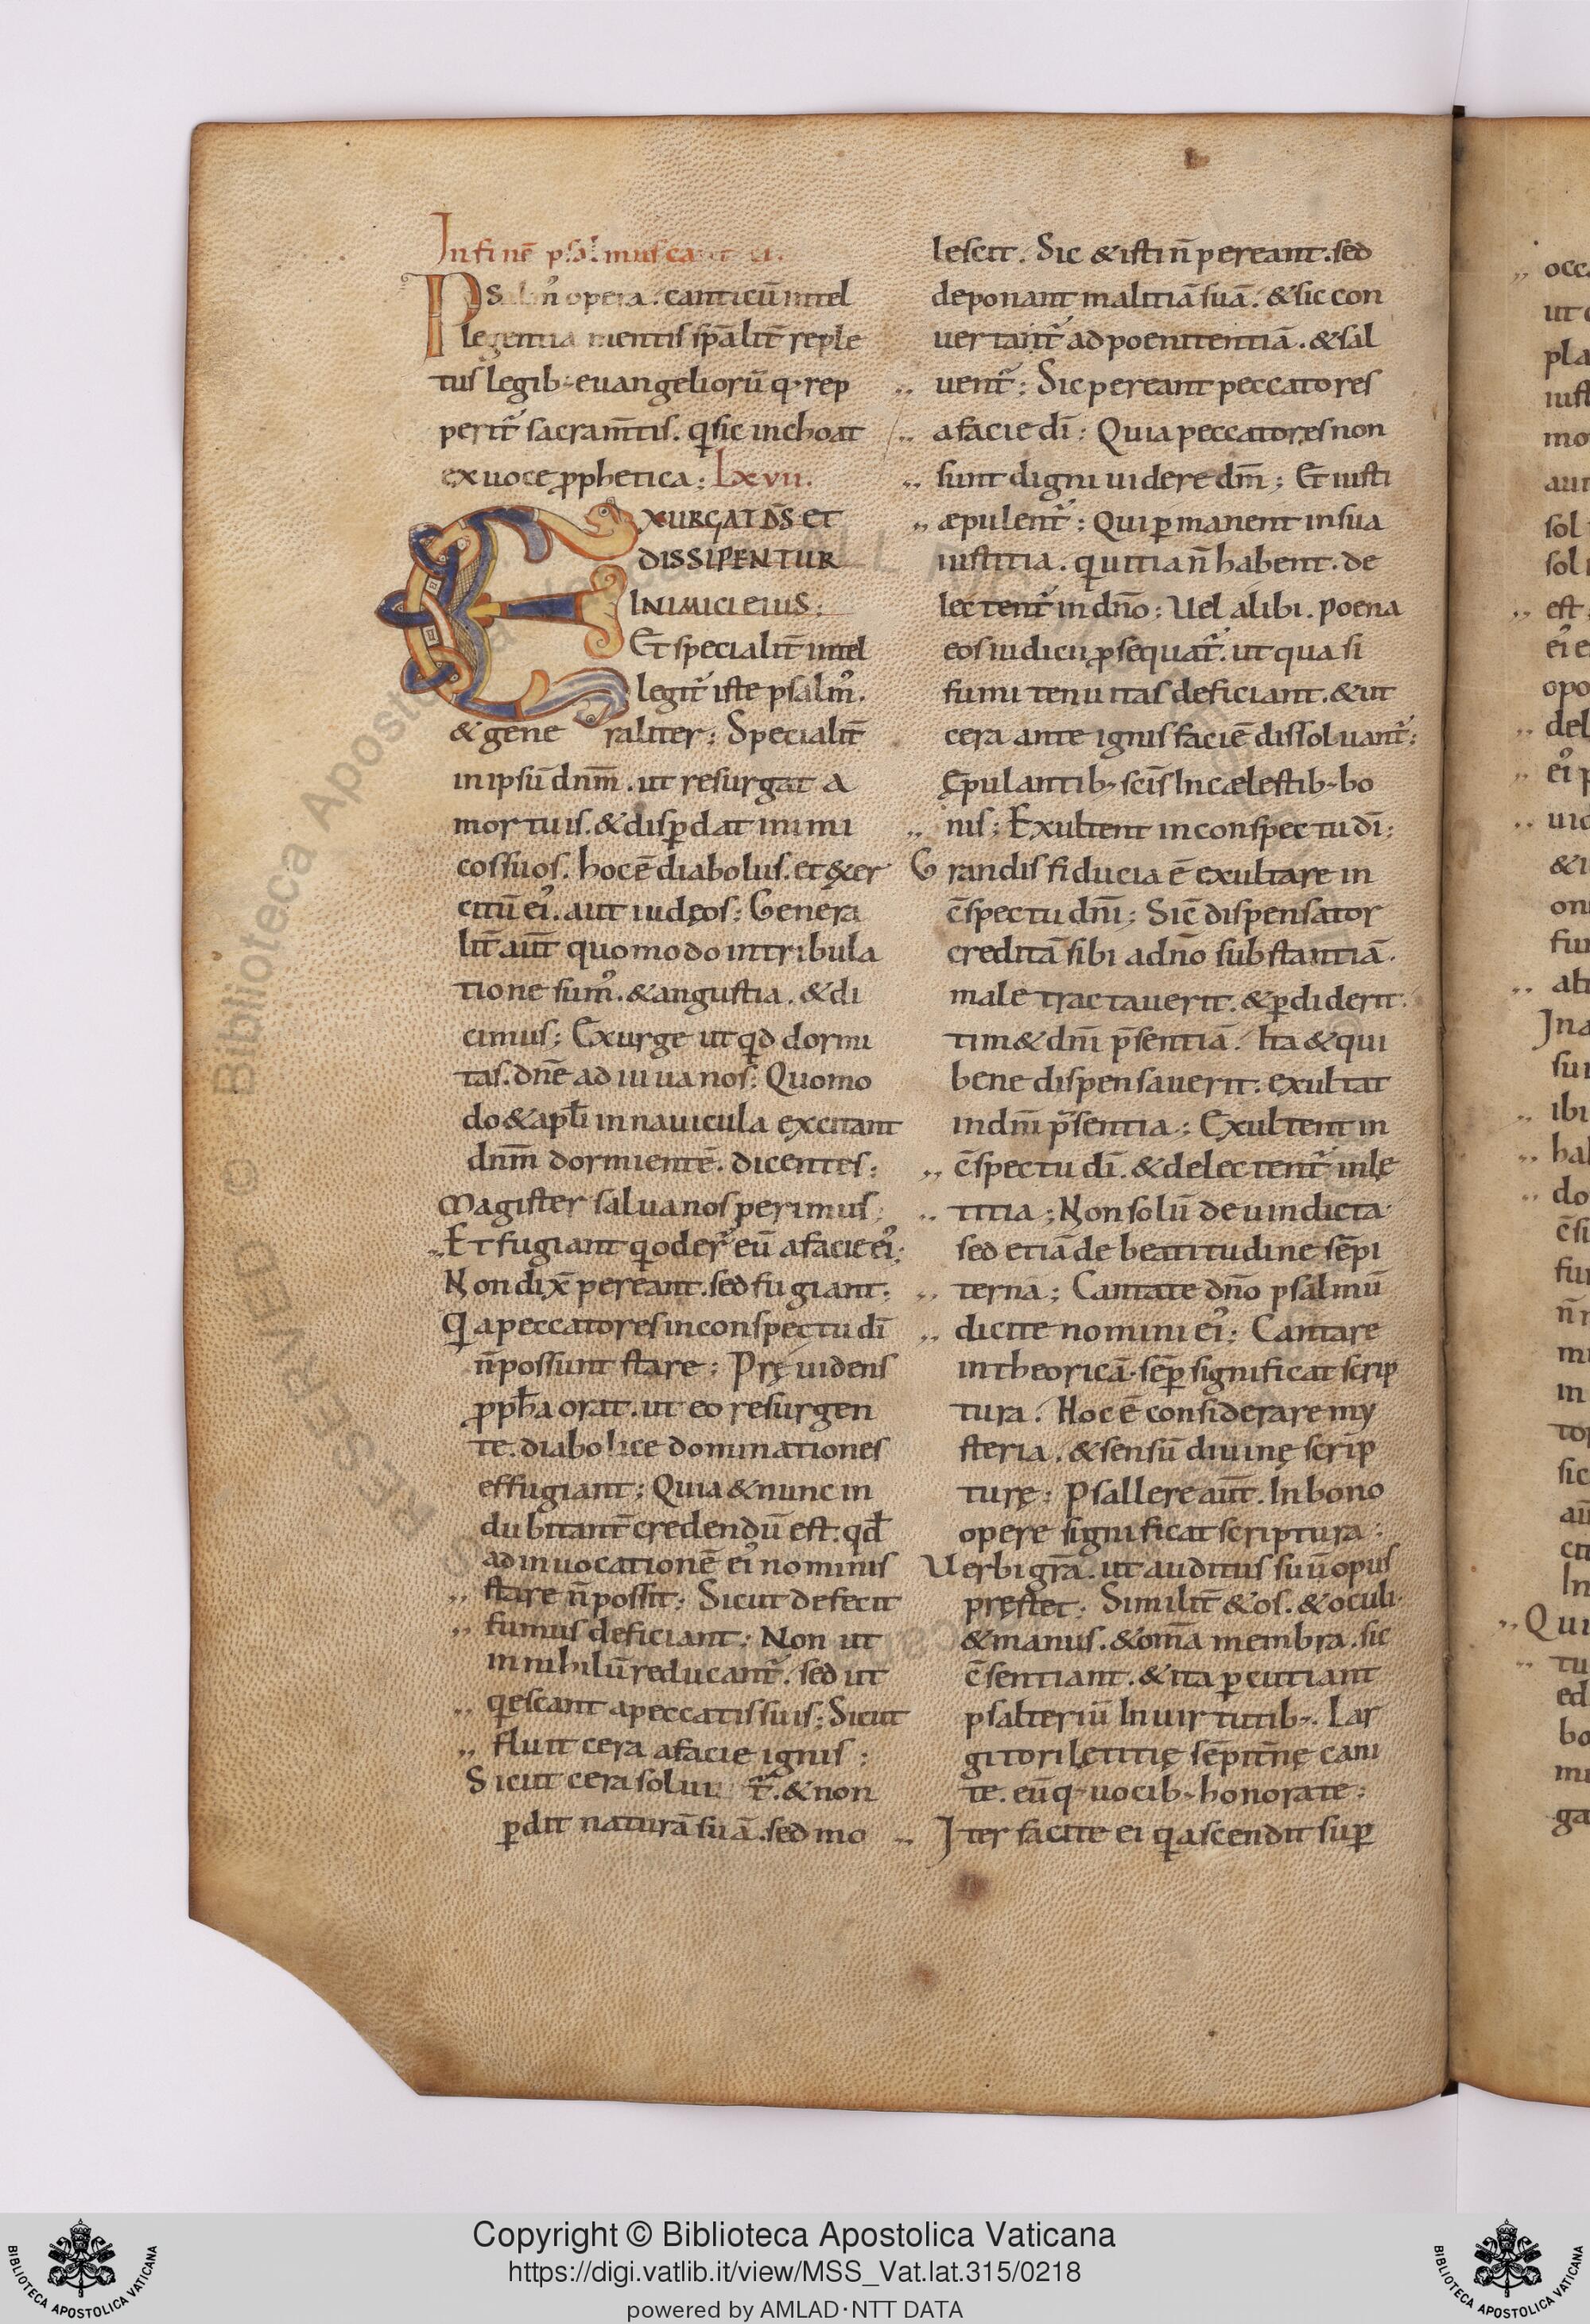 In finē psalmus cant
Psalm̄ opera. canticū intel
legentia mentis sp̄alit̄ reple
tus legib; euangeliorū q; rep
perit̄ sacram̄tis. q sic inchoat
ex uoce ꝓphetica; Lxvii.
EXURGAT D̄S ET
DISSIPENTUR
INIMICI EIUS;
Et specialit̄ intel
legit̄ iste psalm᾽.
& gene raliter; Specialit̄
in ipsū dn̄m. ut resurgat a
mortuis. & disꝑdat inimi
cos suos. hoc ē diabolus. et exer
citū ei᾽. aut iudęos; Genera
lit̄ aut̄ quomodo in tribula
tione sum᾽. & angustia. & di
cimus; Exurge ut qd dormi
tas. dn̄e adiuua nos; Quomo
do & apl̄i in nauicula excitant
dn̄m dormientē. dicentes;
Magister salua nos perimus;
„ Et fugiant q oder̄ eū a facie ei᾽;
Non dix̄ pereant. sed fugiant;
Qa peccatores in conspectu dī
n̄ possunt stare; Pręuidens
ꝓpħa orat. ut eo resurgen
te. diabolice dominationes
effugiant; Quia & nunc in
dubitant̄ credendū est. qđ
ad inuocationē ei᾽ nominis
„ stare n̄ possit; Sicut defecit
„ fumus deficiant; Non ut
in nihilū reducant̄. sed ut
„ qescant a peccatis suis; Sicut
„ fluit cera a facie ignis;
Sicut cera soluit̄. & non
ꝑdit naturā suā. sed mo
lescit. Sic & isti n̄ pereant. sed
deponant malitiā suā. & sic con
uertant̄ ad poenitentiā. & sal
„ uent̄; Sic pereant peccatores
„ a facie dī; Quia peccatores non
„ sunt digni uidere dm̄; Et iusti
„ æpulent̄; Qui ꝑmanent in sua
iustitia. q uitia n̄ habent. de
lectent̄ in dn̄o; Uel alibi. poena
eos iudicii ꝓsequat̄. ut quasi
fumi tenuitas deficiant. & ut
cera ante ignis faciē dissoluant̄;
Ępulantib; scīs In cælestib; bo
„ nis; Exultent in conspectu dī;
Grandis fiducia ē exultare in
c̄spectu dn̄i; Sic̄ dispensator
creditā sibi a dn̄o substantiā.
male tractauerit. & ꝑdiderit.
tim& dn̄i p̄sentiā. Ita & qui
bene dispensauerit. exultat
in dn̄i p̄sentia; Exultent in
„ c̄spectu dī. & delectent̄ in lę
„ titia; Non solū de uindicta
sed etiā de beatitudine sēpi
„ terna; Cantate dn̄o psalmū
„ dicite nomini ei᾽; Cantare
in theoricā. sēꝑ significat scrip
tura. Hoc ē considerare my
steria. & sensū diuinę scrip
turę; Psallere aut̄. In bono
opere significat scriptura;
Uerbi gr̄a. ut auditus suū opus
pręstet; Similit̄ & os. & oculi
& manus. & om̄a membra. sic
c̄sentiant. & ita ꝑcutiant
psalteriū In uirtutib;. Lar
gitori lętitię sēpit̄nę cani
te. eūq; uocib; honorate;
„ Iter facite ei q ascendit suꝑ
Copyright © Biblioteca Apostolica Vaticana
https://digi.vatlib.it/view/MSS_Vat.lat.315/0218
powered by AMLAD·NTT DATA
BIBLIOTECA APOSTOLICA VATICANA
BIBLIOTECA APOSTOLICA VATICANA